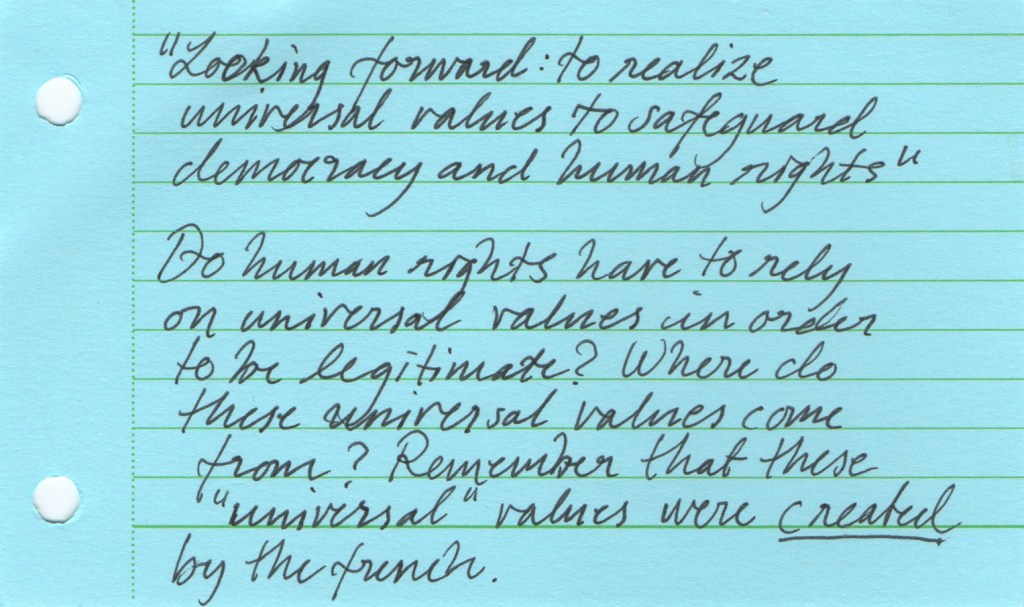 "Looking forward: to realize
universal values to safeguard
democracy and human rights"
Do human rights have to rely
on universal values in order
to be legitimate? Where do
these universal values come
from? Remember that these
"universal" values were created
by the french.